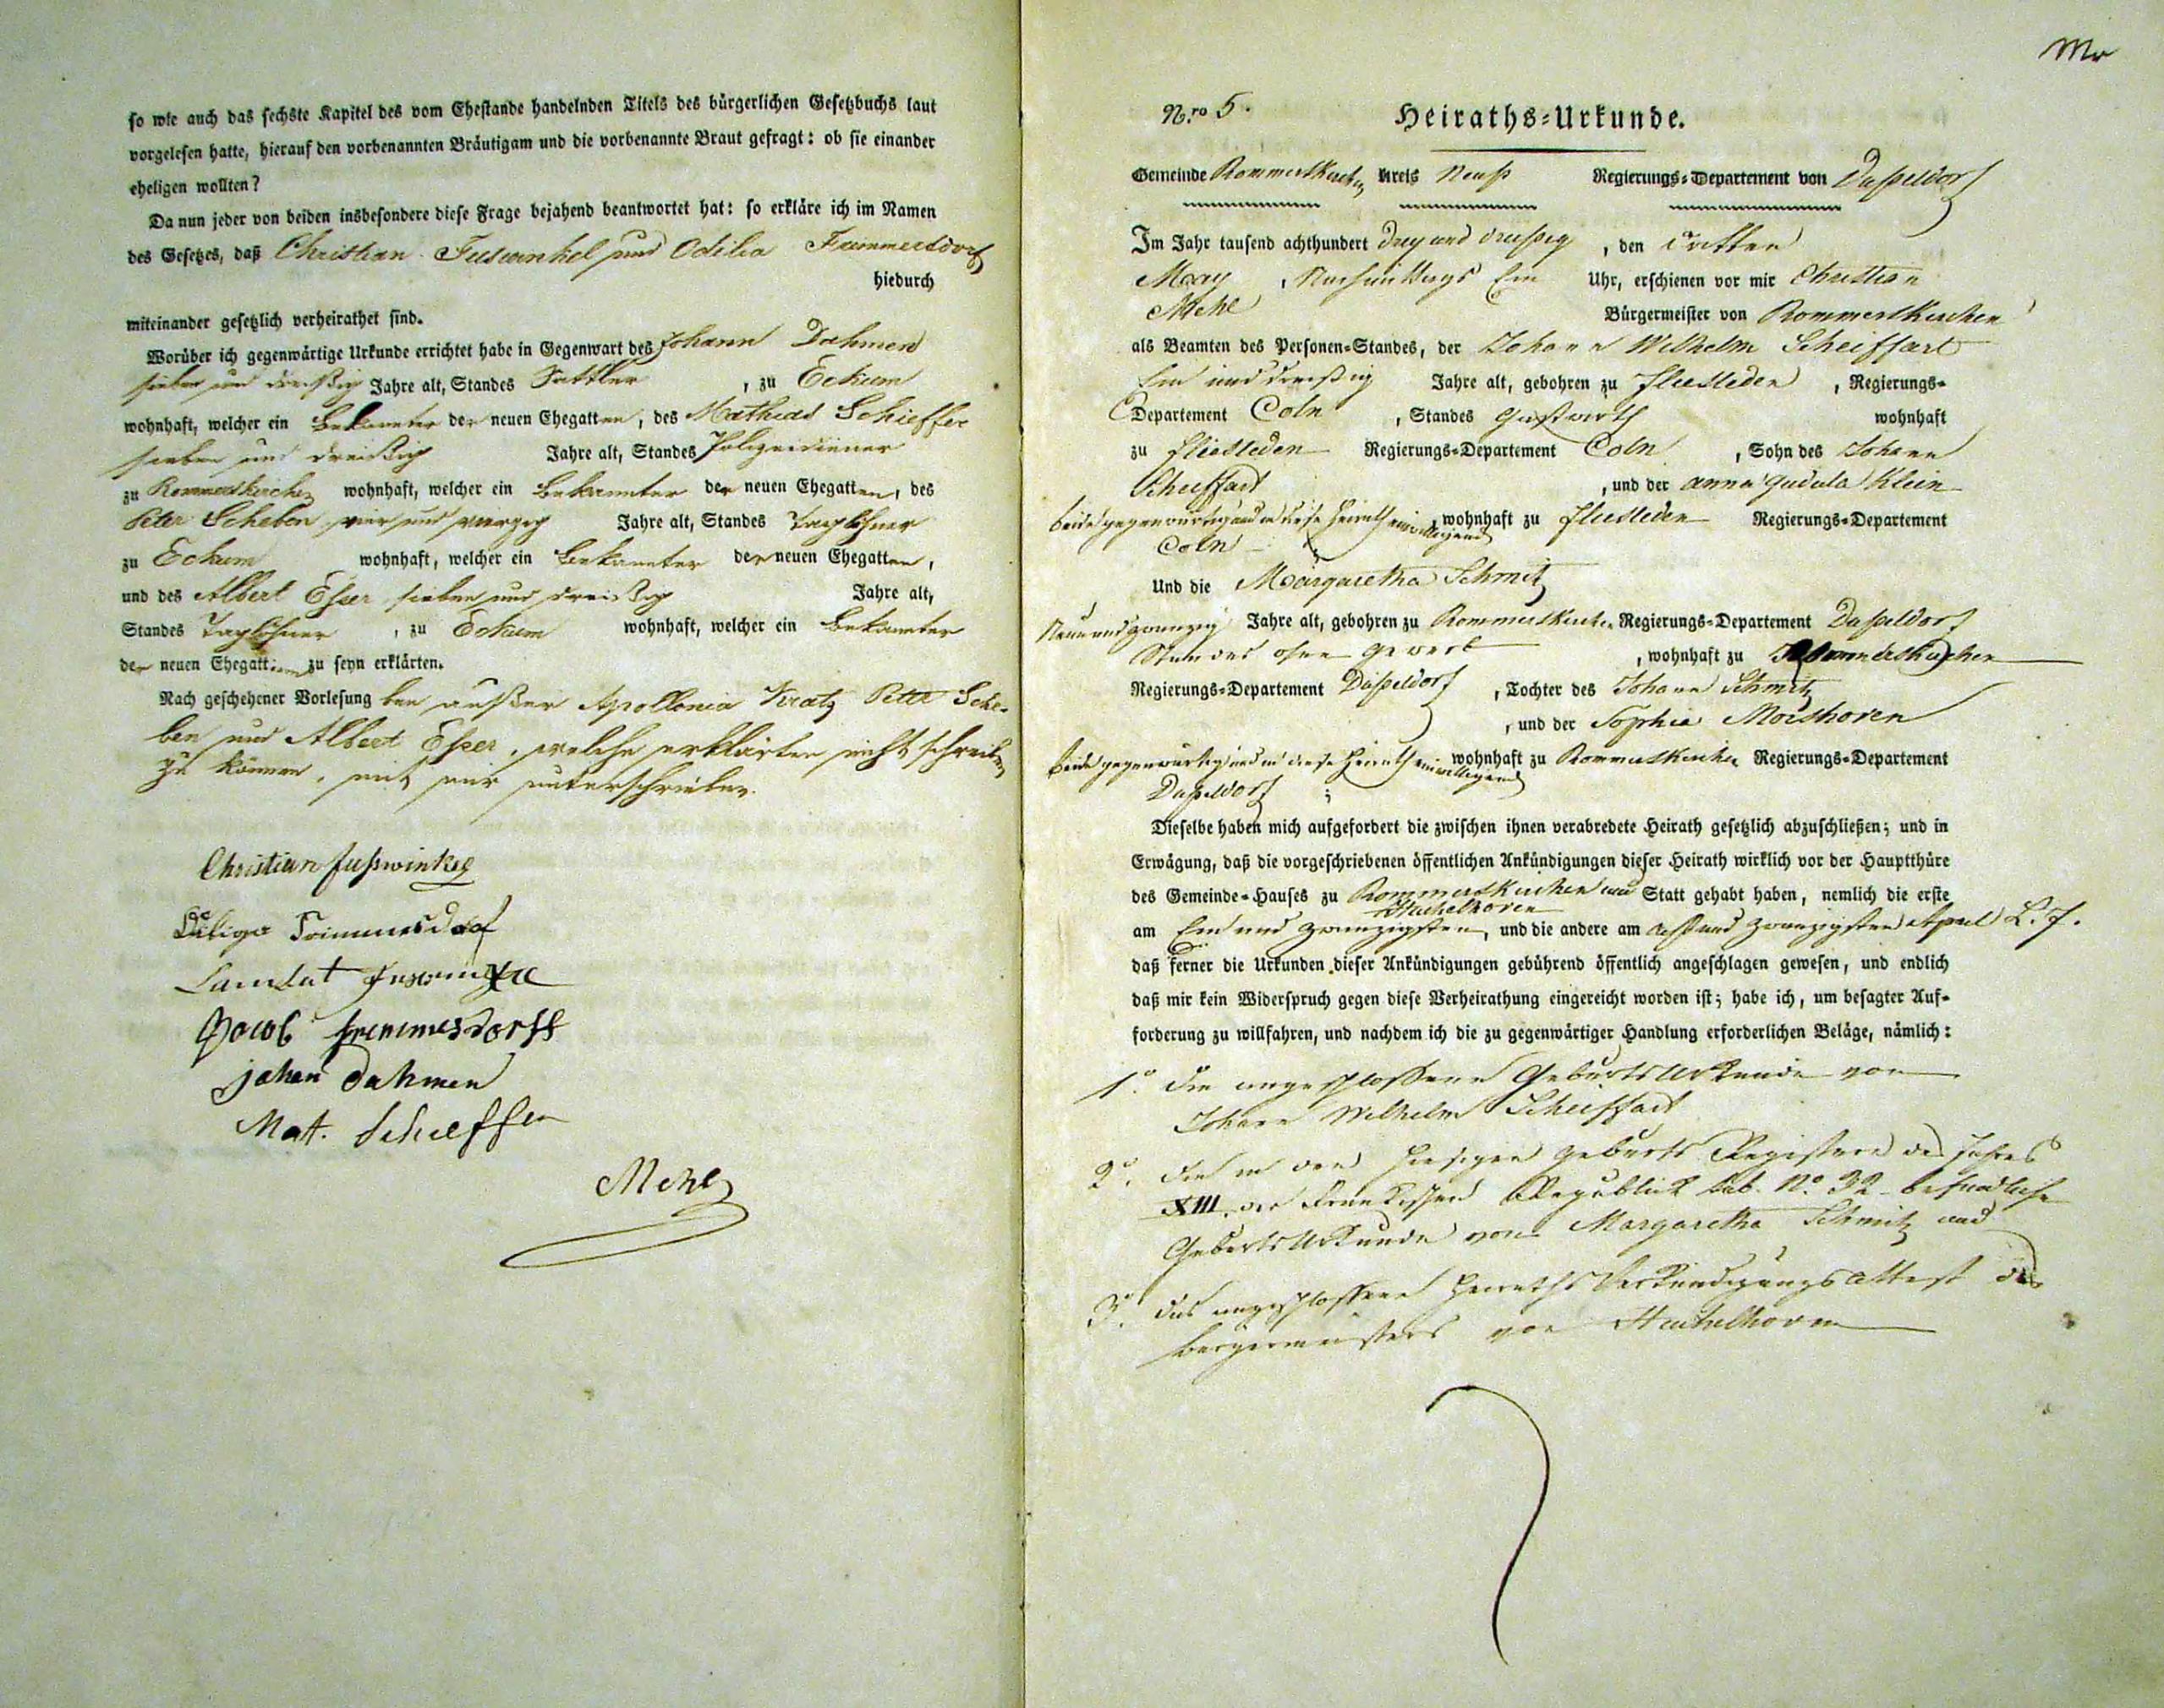 so wie auch das sechste Kapitel des vom Ehestande handelnden Titels des bürgerlichen Gesetzbuchs laut
vorgelesen hatte, hierauf den vorbenannten Bräutigam und die vorbenannte Braut gefragt: ob sie einander
eheligen wollten?
Da nun jeder von beiden insbesondere diese Frage bejahend beantwortet hat: so erkläre ich im Namen
des Gesetzes, daß Christian Fuswinkel und Odilia Frimmersdorf
hiedurch
miteinander gesetzlich verheirathet sind.
Worüber ich gegenwärtige Urkunde errichtet habe in Gegenwart des Johann Dahmen
sieben und dreißig Jahre alt, Standes Sattler, zu Eckum
wohnhaft, welcher ein Bekannter der neuen Ehegatten, des Mathias Schieffer
sieben und dreißig Jahre alt, Standes Polizeidiener
zu Rommerskirchen wohnhaft, welcher ein Bekannter der neuen Ehegatten, des
Peter Scheben vier und vierzig Jahre alt, Standes Taglöhner
zu Eckum wohnhaft, welcher ein Bekannter der neuen Ehegatten,
und des Albert Esser sieben und dreißig Jahre alt,
Standes Taglöhner, zu Eckum wohnhaft, welcher ein Bekannter
der neuen Ehegatten zu seyn erklärten.
Nach geschehener Vorlesung haben außer Apollonia Kratz Peter Sche-
ben und Albert Esser, welche erklärten nicht schreiben
zu können, mit mir unterschrieben.
Christian fußwinkel
Jacob frimmesdorff
johan Dahmen
Mat. Schieffer
Mehl
Mr
N.ro 5.
Heiraths-Urkunde.
Gemeinde Rommerskirchen Kreis Neuß Regierungs-Departement von Düsseldorf
Im Jahr tausend achthundert drey und dreißig, den dritten
May, Nachmittags Ein Uhr, erschienen vor mir Christian
Mehl Bürgermeister von Rommerskirchen
als Beamten des Personen-Standes, der Johann Wilhelm Scheiffart
Ein und dreißig Jahre alt, gebohren zu Fliesteden, Regierungs-
Departement Coln, Standes Gastwirth wohnhaft
zu Fliesteden Regierungs-Departement Coln, Sohn des Johann
Scheiffart, und der Anna Gudula Klein
beide gegenwärtig und in diese Heirath einwilligend, wohnhaft zu Fliesteden Regierungs-Departement
Coln
Und die Margaretha Schmitz
Neun und zwanzig Jahre alt, gebohren zu Rommerskirchen Regierungs-Departement Düsseldorf
Standes ohne Gewerb, wohnhaft zu Rommerskirchen
Regierungs-Departement Düsseldorf, Tochter des Johann Schmitz
, und der Sophia Moishoven
beide gegenwärtig und in diese Heirath einwilligend wohnhaft zu Rommerskirchen Regierungs-Departement
Düsseldorf;
Dieselbe haben mich aufgefordert die zwischen ihnen verabredete Heirath gesetzlich abzuschließen; und in
Erwägung, daß die vorgeschriebenen öffentlichen Ankündigungen dieser Heirath wirklich vor der Hauptthüre
des Gemeinde-Hauses zu Rommerskirchen und Statt gehabt haben, nemlich die erste
Huchelhoven
am Ein und zwanzigsten, und die andere am acht und zwanzigsten April L. J.
daß ferner die Urkunden dieser Ankündigungen gebührend öffentlich angeschlagen gewesen, und endlich
daß mir kein Widerspruch gegen diese Verheirathung eingereicht worden ist; habe ich, um besagter Auf-
forderung zu willfahren, und nachdem ich die zu gegenwärtiger Handlung erforderlichen Beläge, nämlich:
1.° die angeschlossene Geburts Urkunde von
Johann Wilhelm Scheiffart
2.° die in den hiesigen Geburts Registern des Jahres
XIII. der Französischen Republick sub. N.° 32 befindliche
Geburts Urkunde von Margaretha Schmitz und
3.° das angeschlossene Heiraths Verkündigungs Attest des
Bürgermeisters von Huchelhoven